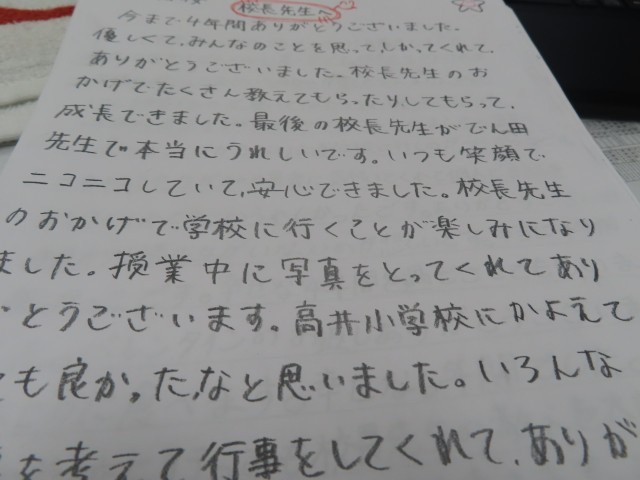 校長先生へ
今まで4年間ありがとうございました。
優しくて、みんなのことを思ってしかってくれて、
ありがとうございました。校長先生のお
かげでたくさん教えてもらったりしてもらって、
成長できました。最後の校長先生がでん田
先生で本当にうれしいです。いつも笑顔で
ニコニコしていて、安心できました。校長先生
のおかげで学校に行くことが楽しみになり
ました。授業中に写真をとってくれてあり
とうございます。高井小学校にかよえて
も良かったなと思いました。いろんな
を考えて行事をしてくれて、ありが